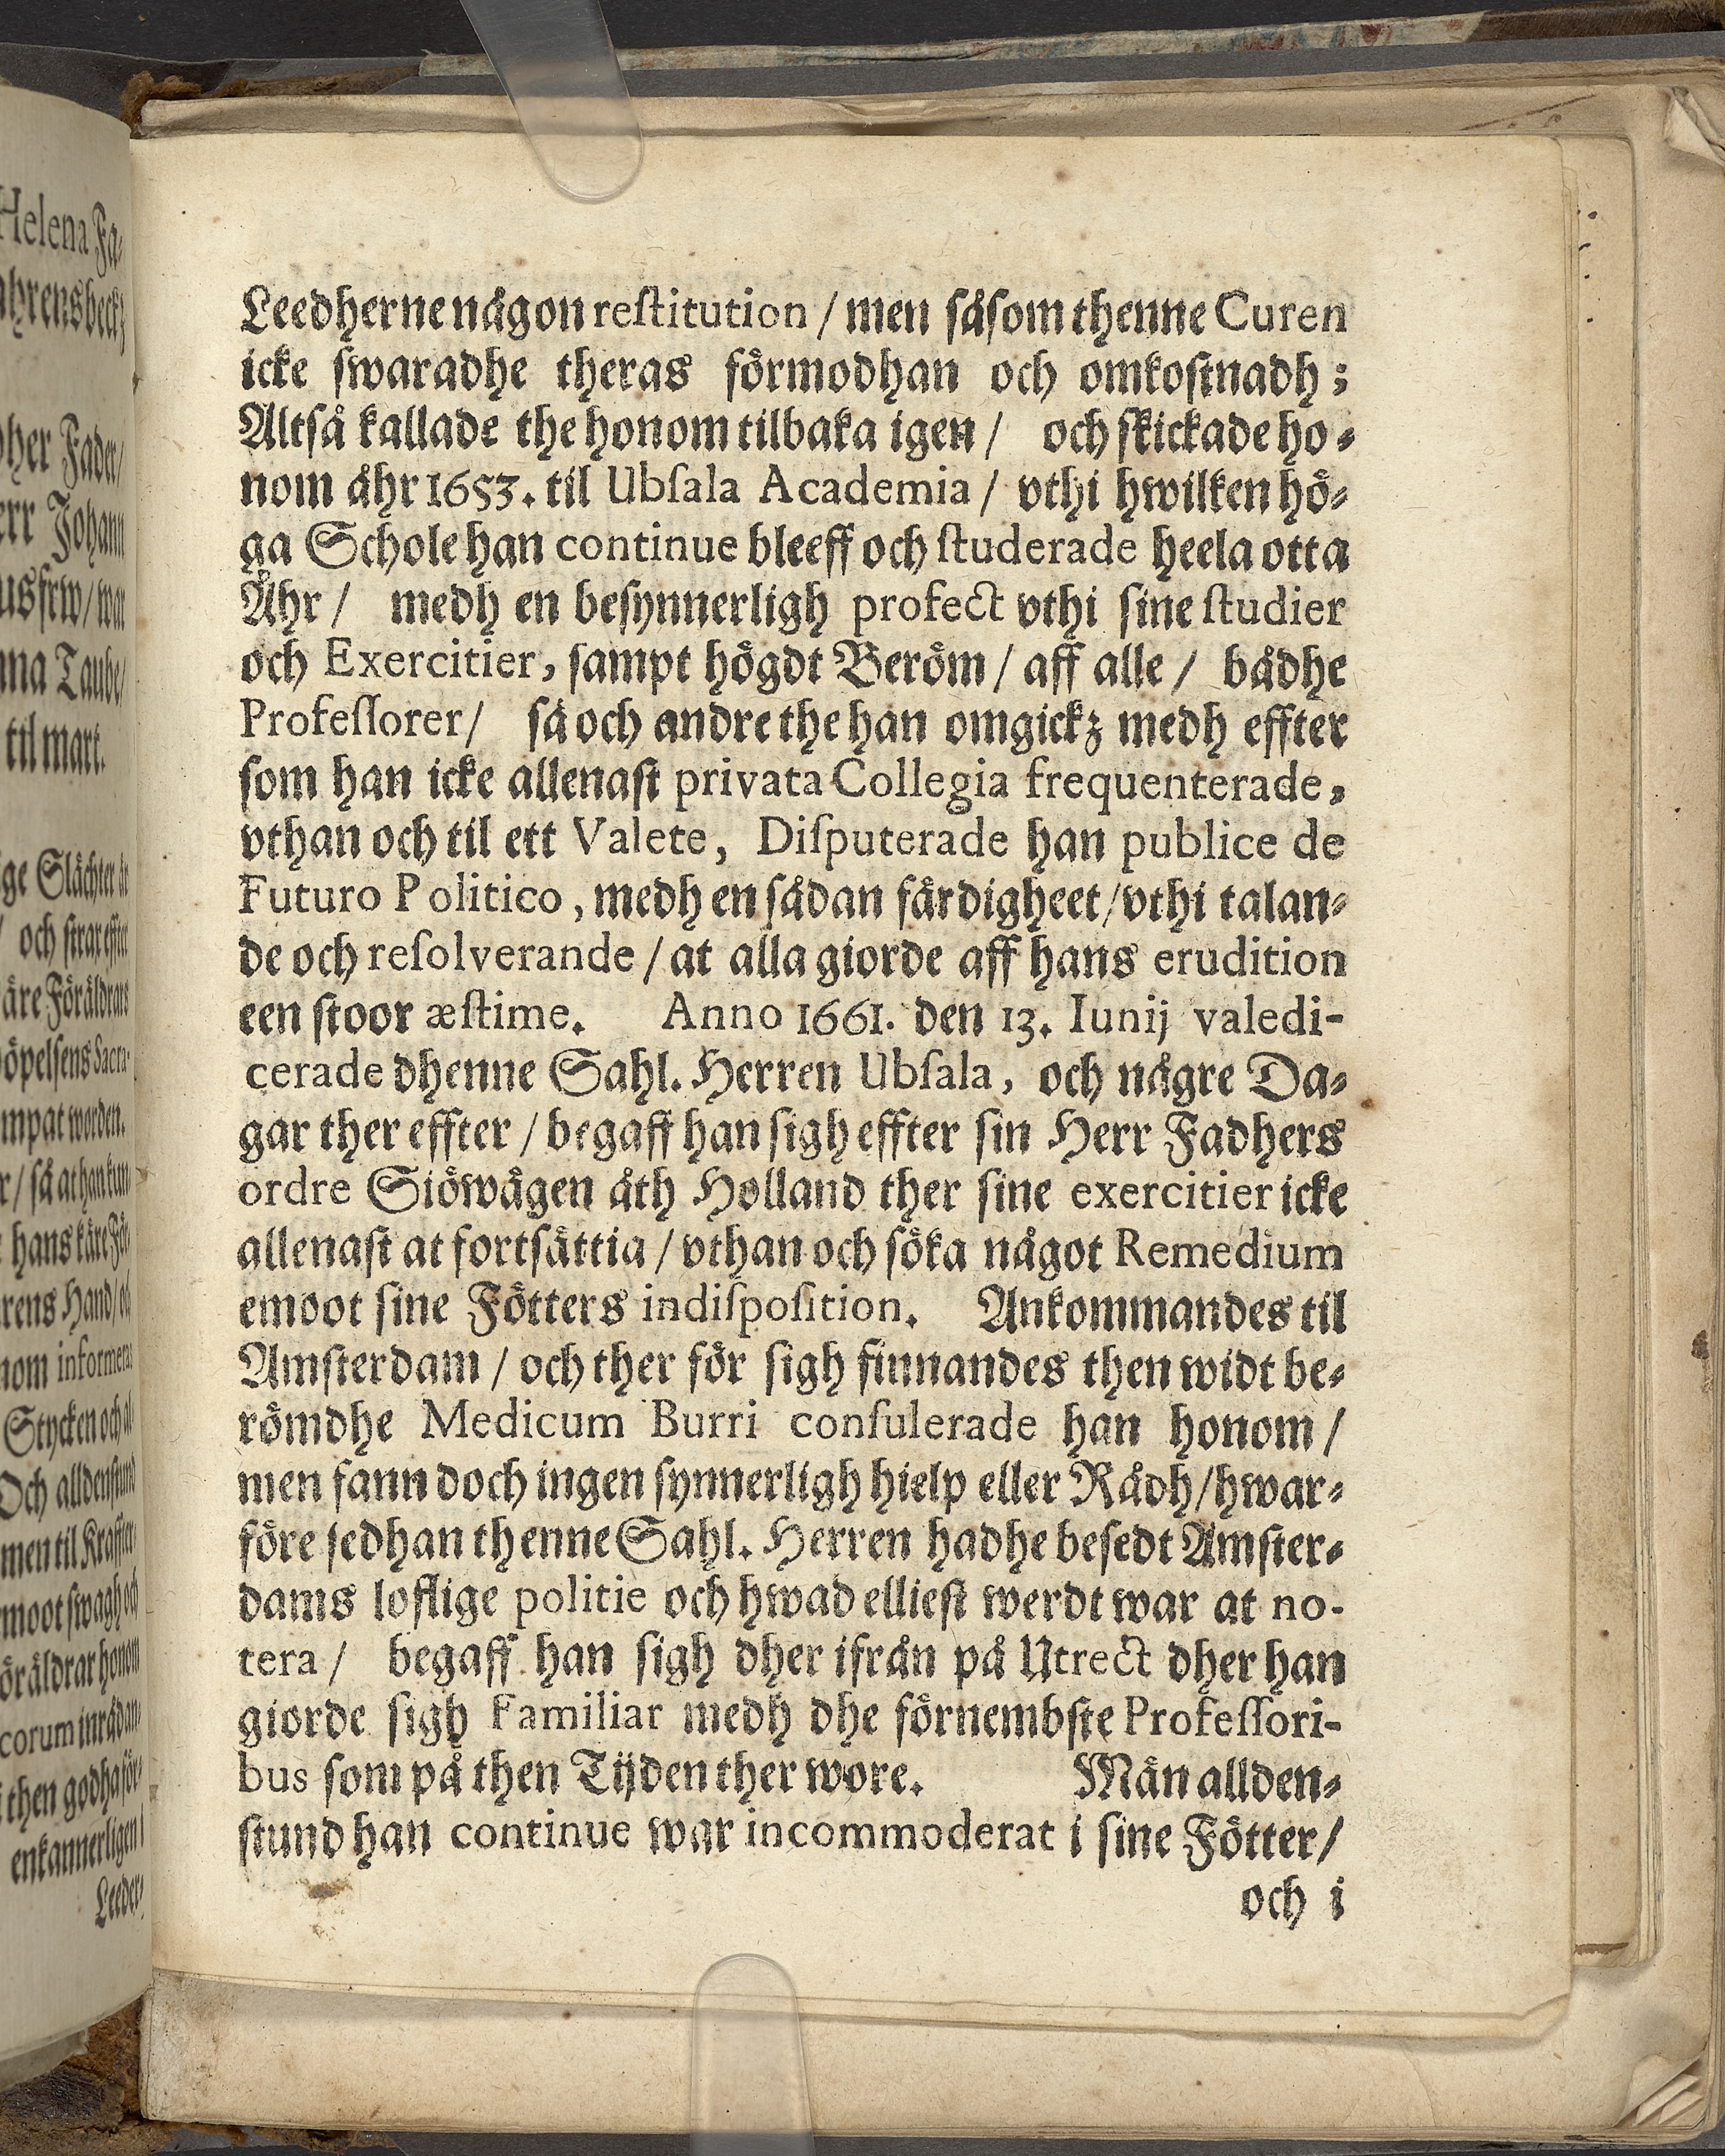 Leedherne någon reſtitution / men ſåſom thenne Curen
icke ſwaradhe theras förmodhan och omkoſtnadh;
Altſå kallade the honom tilbaka igen / och ſkickade ho⸗
nom åhr 1653. til Ubſala Academia / vthi hwilken hö⸗
ga Schole han continue bleeff och ſtuderade heela otta
Åhr / medh en beſynnerligh profect vthi ſine ſtudier
och Exercitier, ſampt högdt Beröm / aff alle / bådhe
Profeſſorer / ſå och andre the han omgickz medh effter
ſom han icke allenaſt privata Collegia frequenterade,
vthan och til ett Valete, Diſputerade han publice de
Futuro Politico, medh en ſådan färdigheet / vthi talan⸗
de och reſolverande / at alla giorde aff hans erudition
een ſtoor æſtime. Anno 1661. den 13. Iunij valedi-
cerade dhenne Sahl. Herren Ubſala, och någre Da⸗
gar ther effter / begaff han ſigh effter ſin Herr Fadhers
ordre Siöwägen åth Holland ther ſine exercitier icke
allenaſt at fortſättia / vthan och ſöka något Remedium
emoot ſine Fötters indiſpoſition. Ankommandes til
Amſterdam / och ther för ſigh finnandes then widt be⸗
römdhe Medicum Burri conſulerade han honom /
men fann doch ingen ſynnerligh hielp eller Rådh / hwar⸗
före ſedhan thenne Sahl. Herren hadhe beſedt Amſter⸗
dams loflige politie och hwad ellieſt werdt war at no-
tera / begaff han ſigh dher ifrån på Utrect dher han
giorde ſigh familiar medh dhe förnembſte Profeſſori-
bus ſom på then Tijden ther wore. Män allden⸗
ſtund han continue war incommoderat i ſine Fötter /
och i